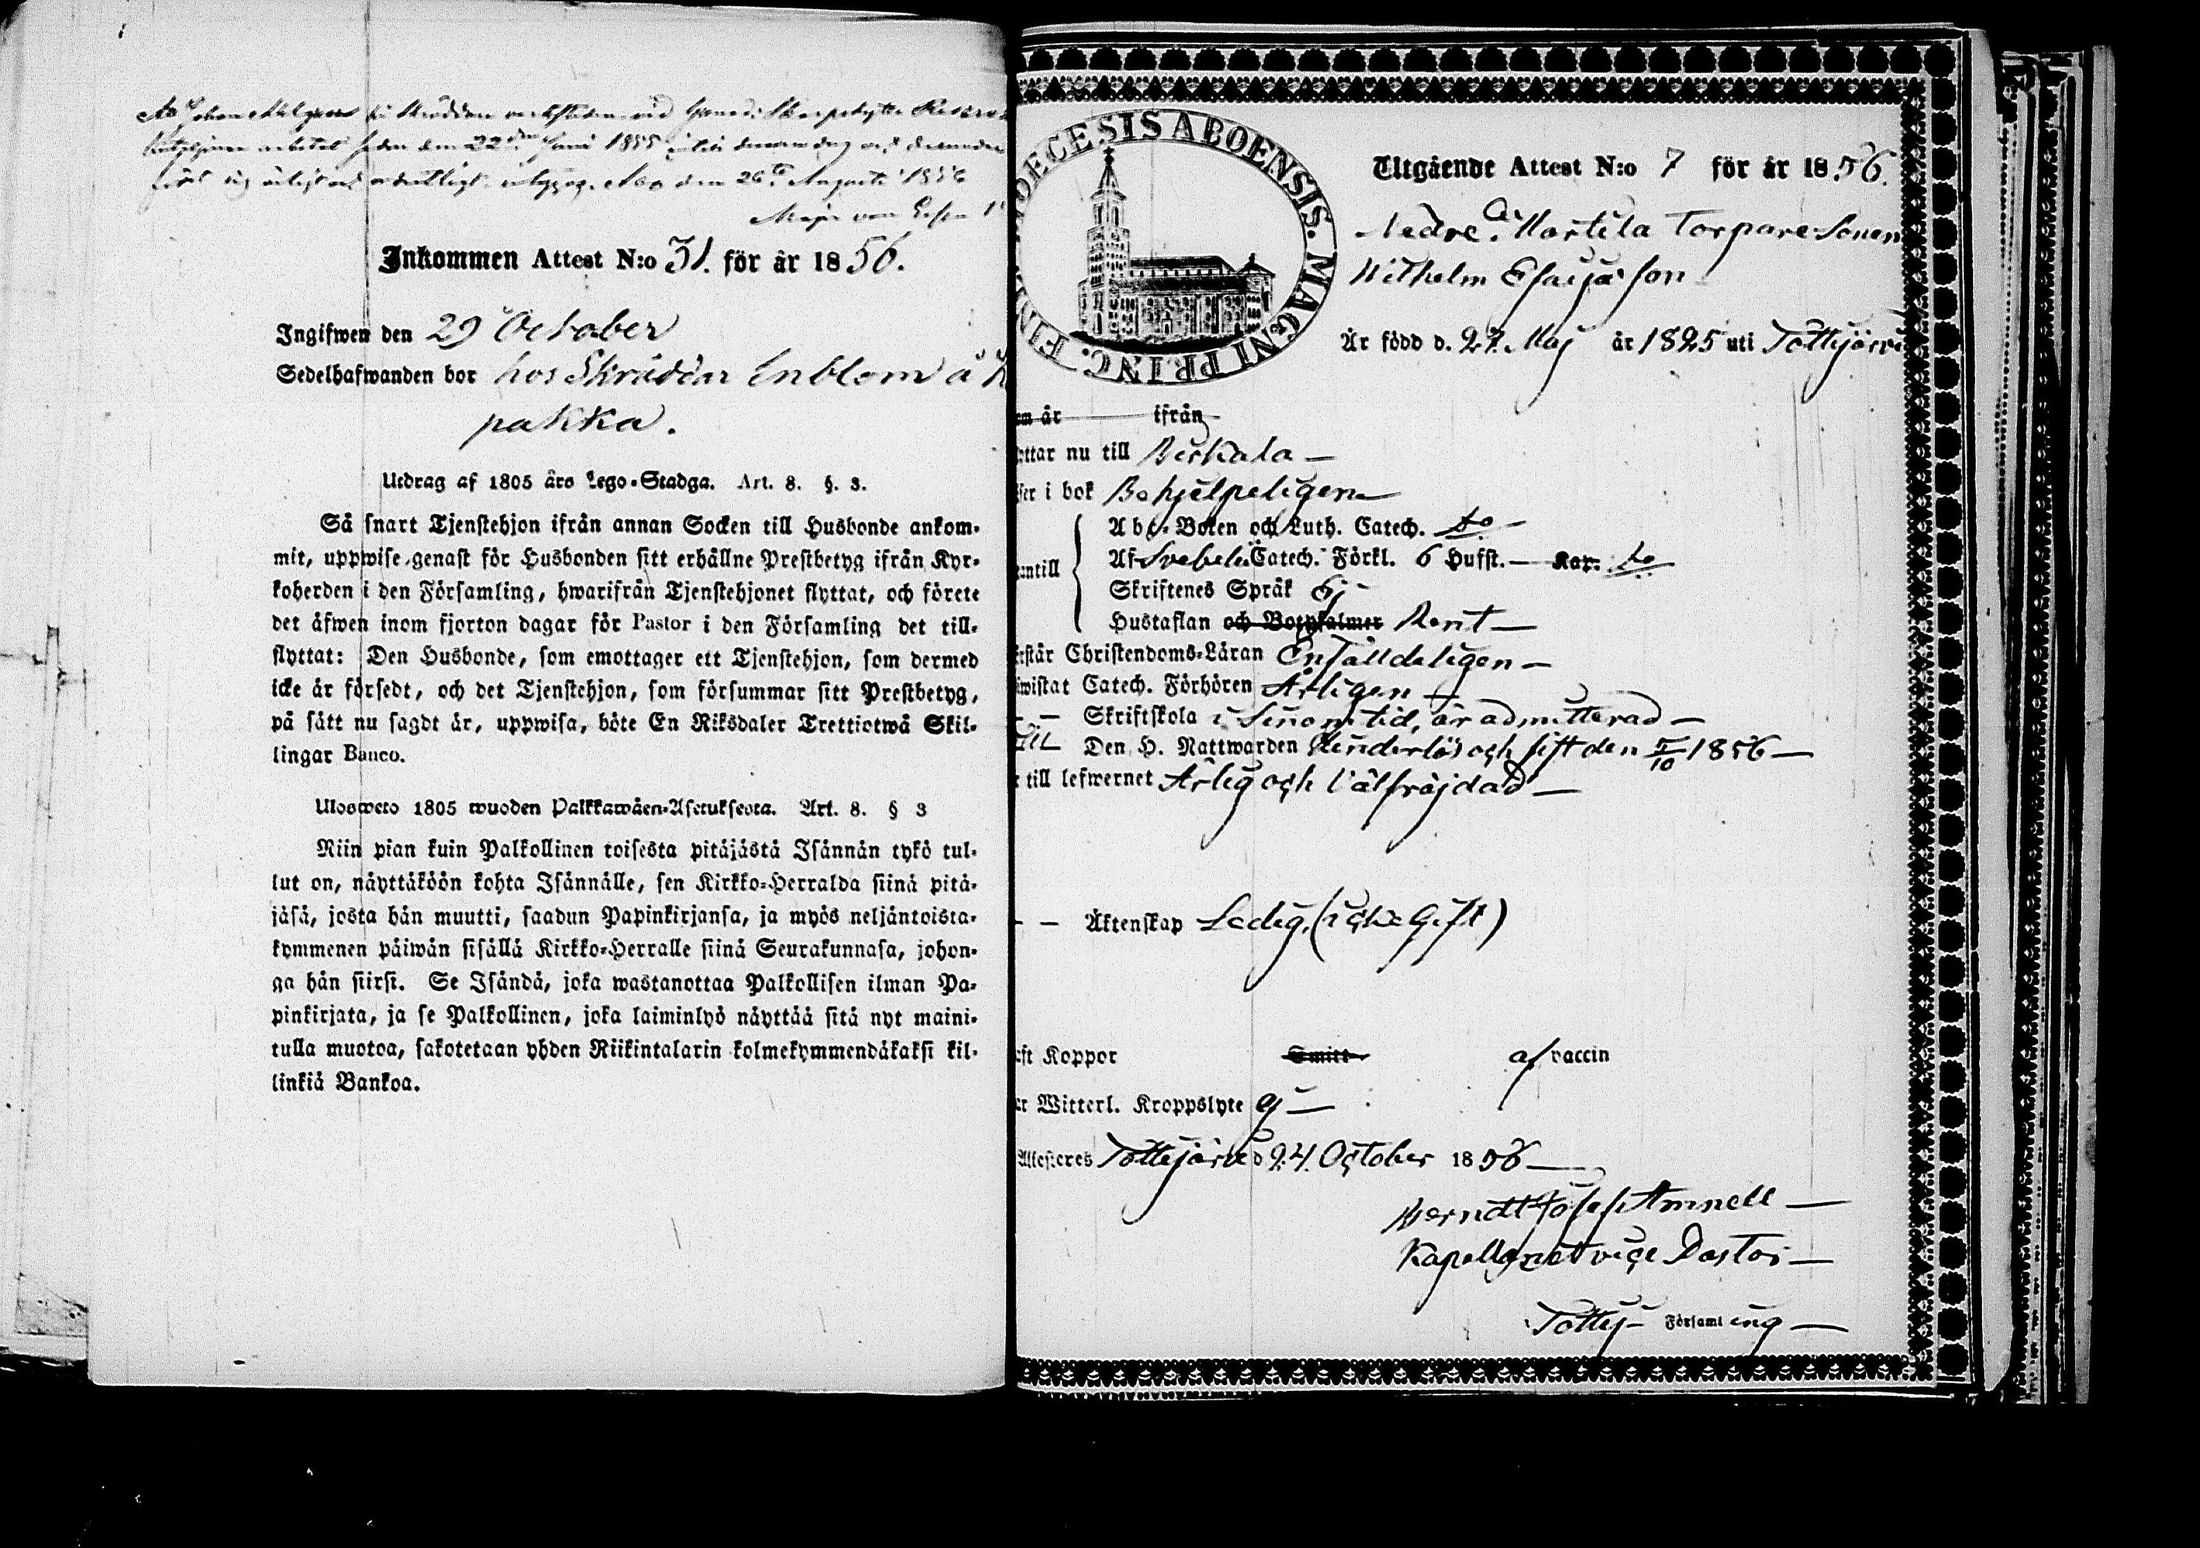 At Johan Ahlgren på Skrädderi verkstaden vid
arbetat sedan den 22dra Juni 1855 intill denna dag och derunder
sig ärligt och ordentligt, intygas. Åbo den 26te Augusti 1856
Major von
Inkommen Attest N:o 31. för år 1856.
Ingifwen den 29 October
Sedelhafwanden bor hos Skräddar Enblom å
pakka.
Utdrag af 1805 års Lego-Stadga. Art. 8. §. 3.
Så snart Tjenstehjon ifrån annan Socken till Husbonde ankom-
mit, uppwise genast för Husbonden sitt erhållne Prestbetyg ifrån Kyr-
koherden i den Församling, hwarifrån Tjenstehjonet flyttat, och förete
det äfwen inom fjorton dagar för Pastor i den Församling det till-
flyttat: Den Husbonde, som emottager ett Tjenstehjon, som dermed
icke är försedt, och det Tjenstehjon, som försummar sitt Prestbetyg,
på sätt nu sagdt är, uppwisa, böte En Riksdaler Trettiotwå Skil-
lingar Banco.
Ulosweto 1805 wuoden Palkkawäen-Asetuksesta. Art. 8. § 3
Niin pian kuin Palkollinen toisesta pitäjästä Isännän tykö tul-
lut on, näyttäköön kohta Isännälle, sen Kirkko-Herralda siinä pitä-
jäsä, josta hän muutti, saadun Papinkirjansa, ja myös neljäntoista-
kymmenen päiwän sisällä Kirkko-Herralle siinä Seurakunnasa, johon-
ga hän siirsi. Se Isändä, joka wastanottaa Palkollisen ilman Pa-
pinkirjata, ja se Palkollinen, joka laiminlyö näyttää sitä nyt maini-
tulla muotoa, sakotetaan yhden Riikintalarin kolmekymmendäkaksi kil-
linkiä Bankoa.
DIOECESIS ABOENSIS. MAGNI PRINC. FINL
Utgående Attest N:o 7 för år 1856.
Nedre Martila Torpare Sonen
Wilhelm Esaiasson
Är född d. 27. Maj år 1825 uti Tottijärvi
om år ifrån
yttar nu till Birkala
ser i bok Behjelpeligen
Abc-Boken och Luth. Catech. do
antill Af Svebelii Catech. Förkl. 6 Hufst. Kap: do
Skriftenes Språk Ej
Hustaflan och Botpsalmer Rent
rstår Christendoms-Läran Enfaldeligen
wistat Catech. Förhören Årligen
Skriftskola i sinom tid, är admitterad
till Den H. Nattwarden Hinderlös och sist den 5/10 1856
r till lefwernet Ärlig och Välfräjdad
Äktenskap Ledig, (icke Gift)
ft Koppor Smitt af vaccin
ar Witterl. Kroppslyte Ej
Attesteres Tottijärvi d 24. October 1856
Berndt Josef Amnell
Kapellan et vice Pastor
Tottij- Församl ing